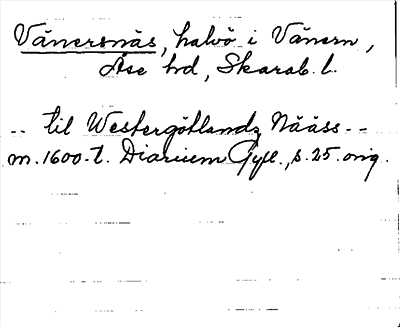 Vänersnäs, halvö i Vänern,
Åse hd, Skarab. l.
-- til Westergötlandz Nääss --
m. 1600-t. Diarium Gyll., s. 25. orig.